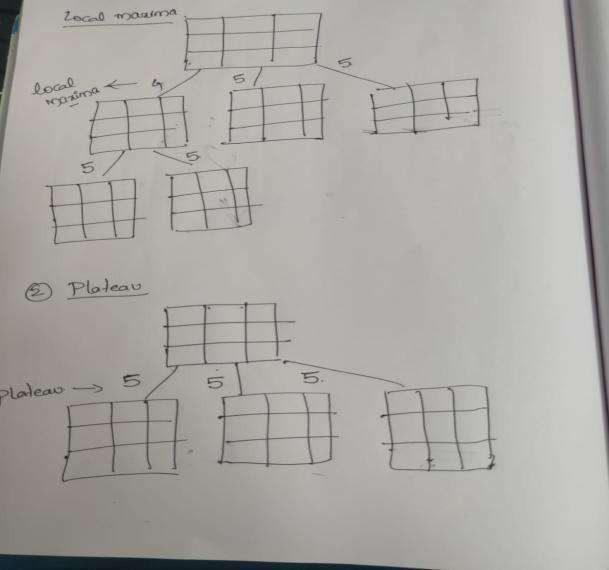 Local maxima
5
local ← 4 5
maxima
5 5
② Plateau
Plateau → 5 5 5.